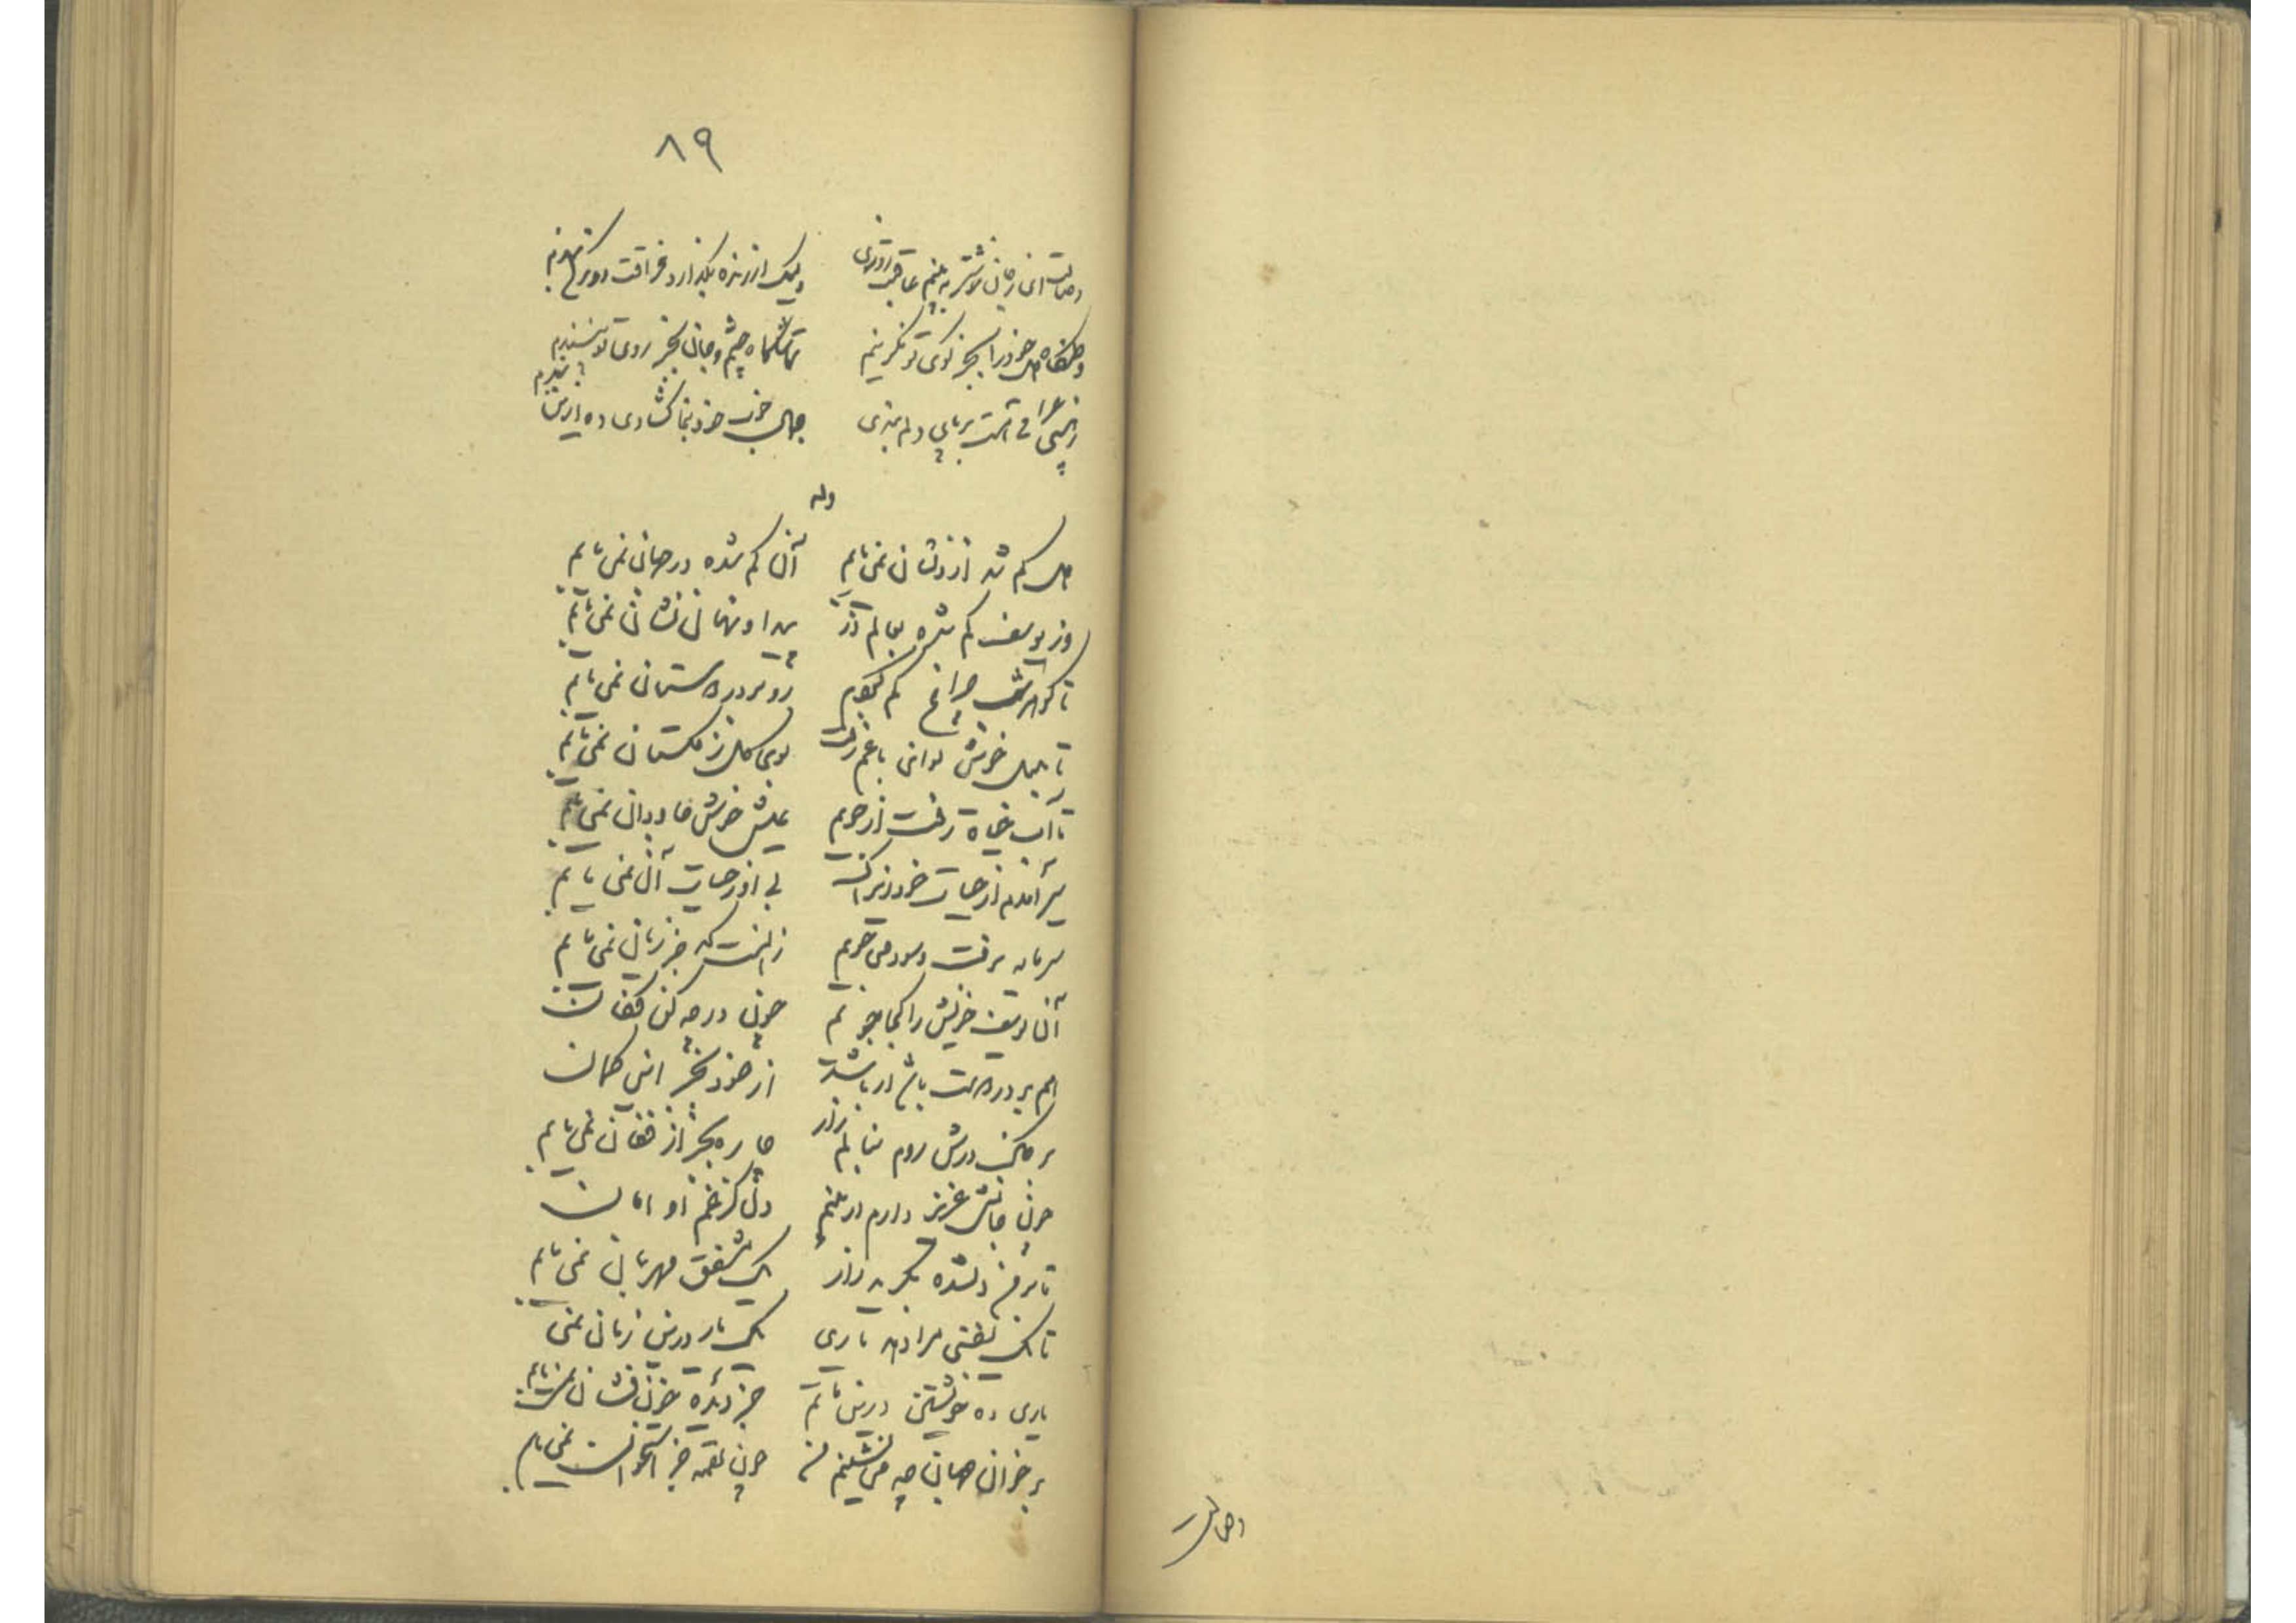 ۸۹
وصالت ای ز جان خوشتر بیابم عاقبت روزی ولیک ار زنده بگذارد فراقت روزکی چندم
وطنگاه دل خود را بجز کوی تو نگزینم تماشاگاه چشم و جان بجز روی تو نپسندم
ز هستی عراقی هست بر پای دلم بندی جمال خوب خود بنما گشادی ده ازین بندم
وله
دل گم شد ازو نشان نمی‌یابم آن گم شده در جهان نمی‌یابم
وز یوسف گم شده بعالم در پیدا و نهان نشان نمی‌یابم
تا گوهر شب چراغ گم کردم ره بر در دلستان نمی‌یابم
تا بلبل خوش نوای باغم رفت بوی گل ز گلستان نمی‌یابم
تا آب حیاة رفت از جویم عیش خوش جاودان نمی‌یابم
سیر آمدم از حیات خود زیراک بی او ز حیات آن نمی‌یابم
سرمایه برفت و سود می‌جویم زانست که جز زیان نمی‌یابم
آن یوسف خویش را کجا جویم چون در همه کن فکان
هم بر در دوست باشد ار باشد از خود بجز این گمان
بر خاک درش روم بنالم زار چاره بجز از فغان نمی‌یابم
چون جانش عزیز دارم ار بینم دل کز غم او امان
تا بر من دلشده بگرید زار یک مشفق مهربان نمی‌یابم
تا یک نفسی مرا دهد یاری یک یار درین زمان نمی
یاری ده خویشتن درین ماتم جز دیده خون فشان نمی‌یابم
بر خوان جهان چه می‌نشینم من چون لقمه جز استخوان نمی‌یابم
وصالت